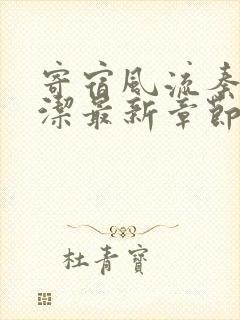 寄宿風流秦
潔最新章節
杜青寶